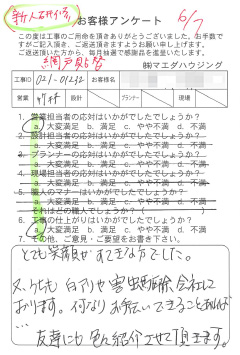 新人研修 6/7
お客様アンケート
この度は工事のご用命を頂きありがとうございました。お手数で
すがご記入頂き、ご返送頂きますようお願い申し上げます。
ご返送頂いた方から、毎月抽選で感謝品を進呈いたします。
網戸貼替 ㈱マエダハウジング
工事ID お客様名
営業 竹林 設計 プランナー 現場
1. 営業担当者の対応はいかがでしたでしょうか？
a. 大変満足 b. 満足 c. やや不満 d. 不満
2. 設計担当者の対応はいかがでしたでしょうか？
a. 大変満足 b. 満足 c. やや不満 d. 不満
3. プランナーの対応はいかがでしたでしょうか？
a. 大変満足 b. 満足 c. やや不満 d. 不満
4. 現場担当者の対応はいかがでしたでしょうか？
a. 大変満足 b. 満足 c. やや不満 d. 不満
5. 職人のマナーはいかがでしたでしょうか？
a. 大変満足 b. 満足 c. やや不満 d. 不満
それはどの職人でしょうか？（ ）
6. 工事の仕上がりはいかがでしたでしょうか？
a. 大変満足 b. 満足 c. やや不満 d. 不満
7. その他、ご意見・ご要望をお書き下さい。
とても笑顔がすてきな方でした。
又、ウチも白アリや害虫駆除会社にて
おります。何なりお手伝いできることあれば
…
友達にも 紹介させて頂きます。